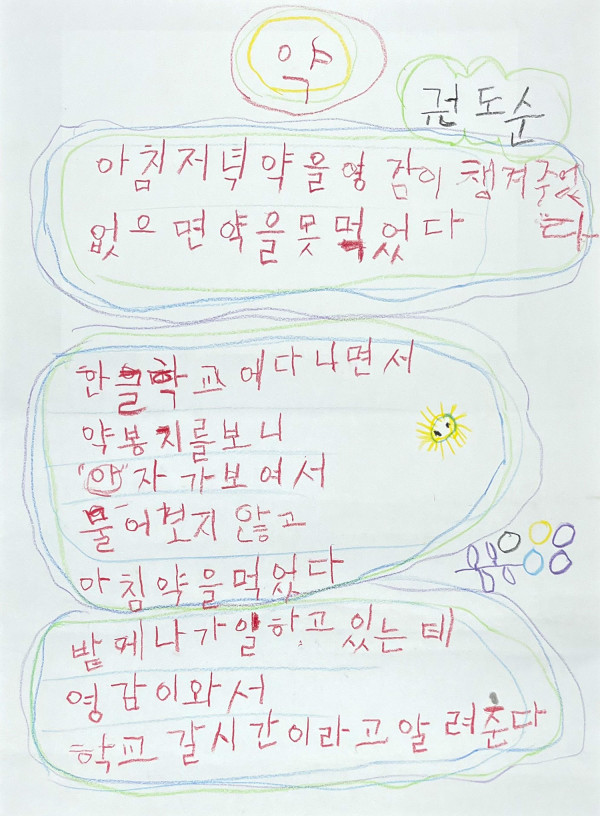 약
권도순
아침저녁약을영감이 챙겨주었
다
없으면약을못먹었다
한글학교에다니면서
약봉지를보니
"약"자가보여서
물어보지 않고
아침약을먹었다
밭페나가일하고있는테
영감이와서
학교갈시간이라고알려준다